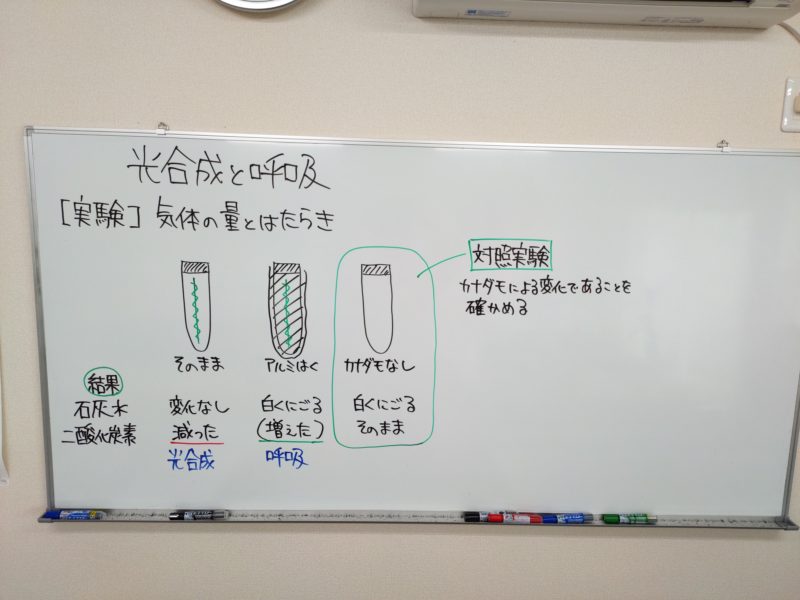 光合成と呼吸
[実験] 気体の量とはたらき
対照実験
カナダモによる変化であることを
確かめる
そのまま アルミはく カナダモなし
結果
石灰水 変化なし 白くにごる 白くにごる
二酸化炭素 減った (増えた) そのまま
光合成 呼吸